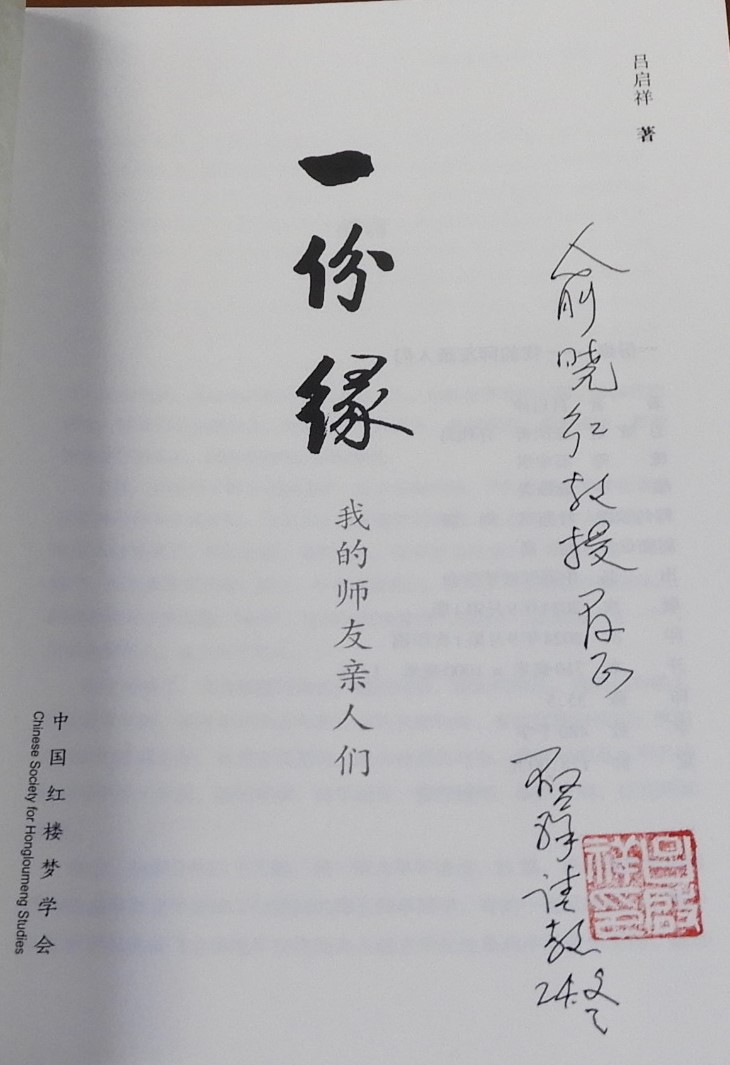 吕启祥 著
俞晓红教授存正
启祥请教
24.冬
一份缘
我的师友亲人们
中国红楼梦学会
Chinese Society for Hongloumeng Studies